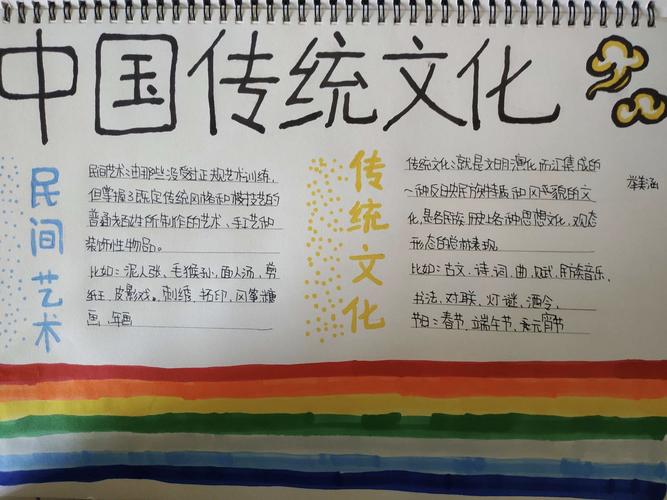 中国传统文化
民间艺术
民间艺术：由那些没受过正规艺术训练，
但掌握了既定传统风格和模技艺的
普通老百姓所制作的艺术、手工艺和
装饰性物品。
比如：泥人张，毛猴孙，面人汤，剪
纸王，皮影戏。刺绣、拓印、风筝糖
画，年画
传统文化
传统文化：就是文明演化而汇集成的
一种反映民族特质和风貌的文
化，是各民族历史上各种思想文化，观态
形态的总体表现
比如：古文、诗、词、曲、赋，民族音乐、
书法，对联，灯谜，酒令，
节日：春节，端午节，元宵节
美涵